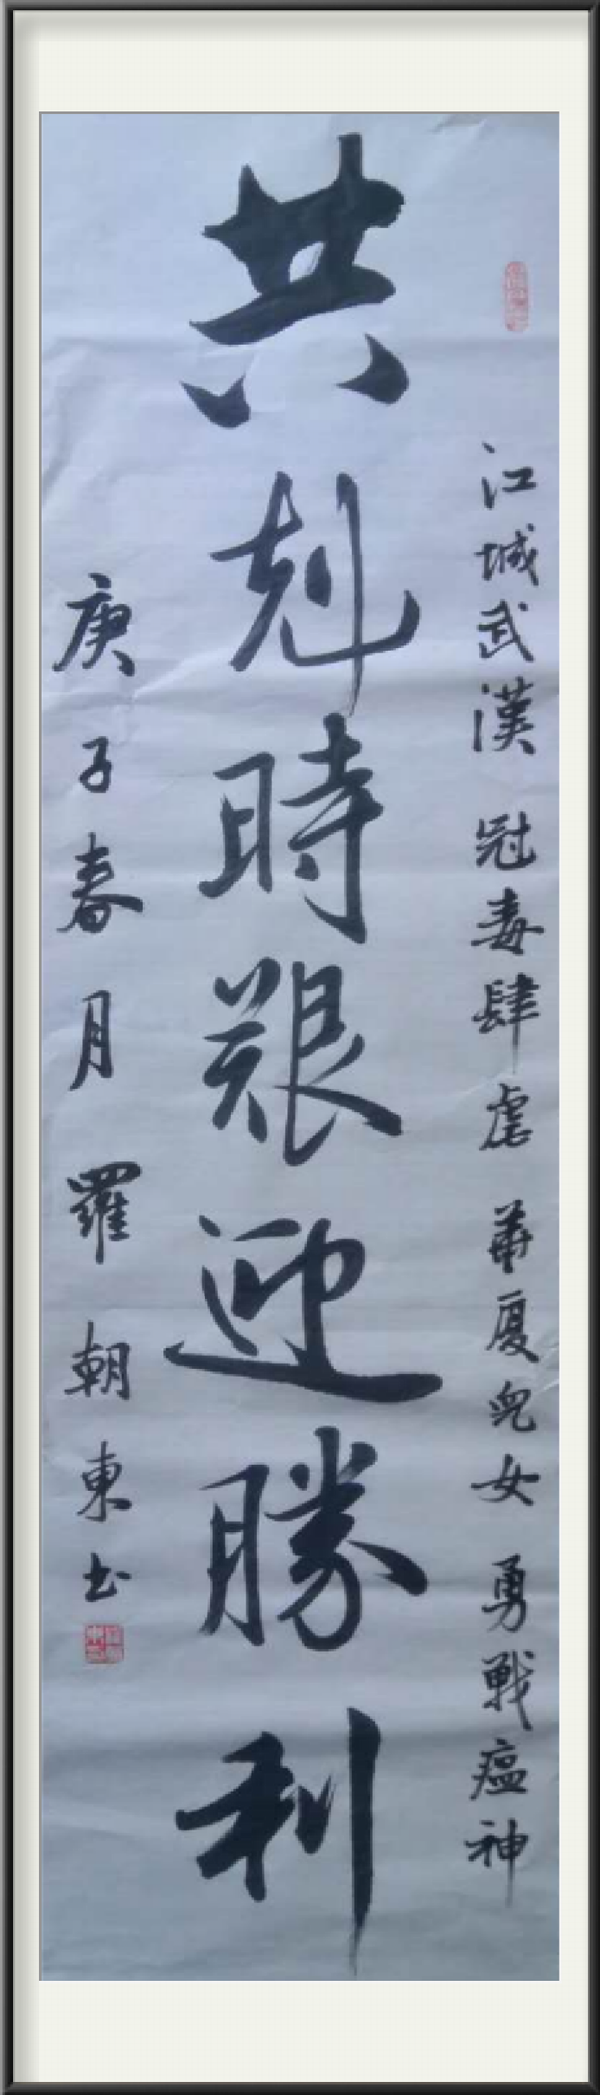 江城武漢 冠毒肆虐 華夏兒女 勇戰瘟神
共剋時艱迎勝利
庚子春月 羅朝東书